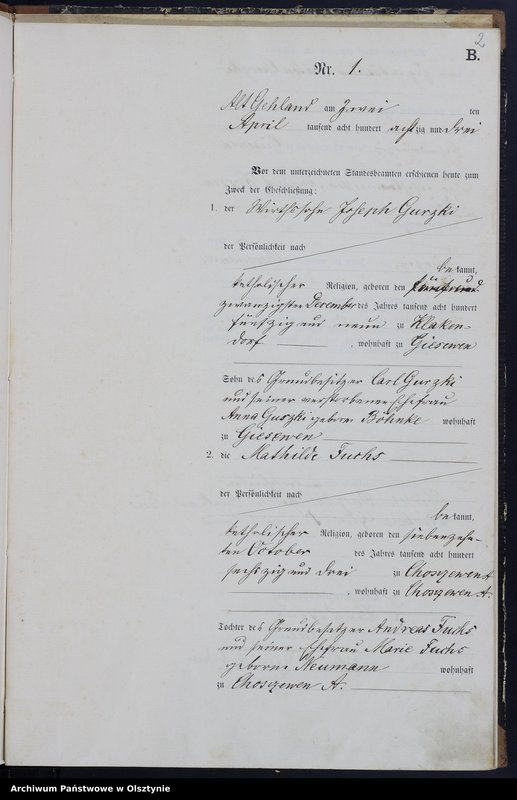 2
B.
Nr. 1.
Alt Gehland am zwei ten
April tausend acht hundert achtzig und drei
Vor dem unterzeichneten Standesbeamten erschienen heute zum
Zweck der Eheschließung:
1. der Wirthssohn Joseph Gurzki
der Persönlichkeit nach
be kannt,
katholischer Religion, geboren den fünfund
zwanzigsten December des Jahres tausend acht hundert
fünfzig und neun zu Klaken-
dorf , wohnhaft zu Giesewen
Sohn des Grundbesitzer Carl Gurzki
und seiner verstorbenen Ehefrau
Anna Gurzki geborne Böhnke wohnhaft
zu Giesewen
2. die Mathilde Fuchs
der Persönlichkeit nach
be kannt,
katholischer Religion, geboren den siebenzehn-
ten October des Jahres tausend acht hundert
sechszig und drei zu Choszewen A.
, wohnhaft zu Choszewen A.
Tochter des Grundbesitzer Andreas Fuchs
und seiner Ehefrau Marie Fuchs
geborne Neumann wohnhaft
zu Choszewen A.
Archiwum Państwowe w Olsztynie